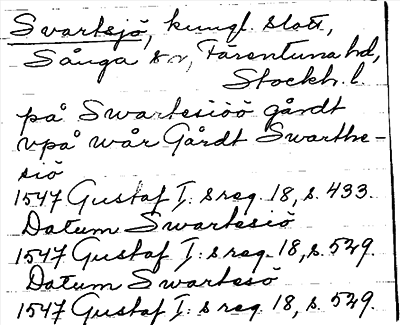 Svartsjö, kungl. slott,
Sånga sn, Färentuna hd,
Stockh. l.
på Swartesiöö gårdt
vpå wår Gårdt Swarthe-
siö
1547 Gustaf I: s reg. 18, s. 433.
Datum Swartesiö
1547 Gustaf I: s reg. 18, s. 529.
Datum Swartesö
1547 Gustaf I: s reg. 18, s. 529.